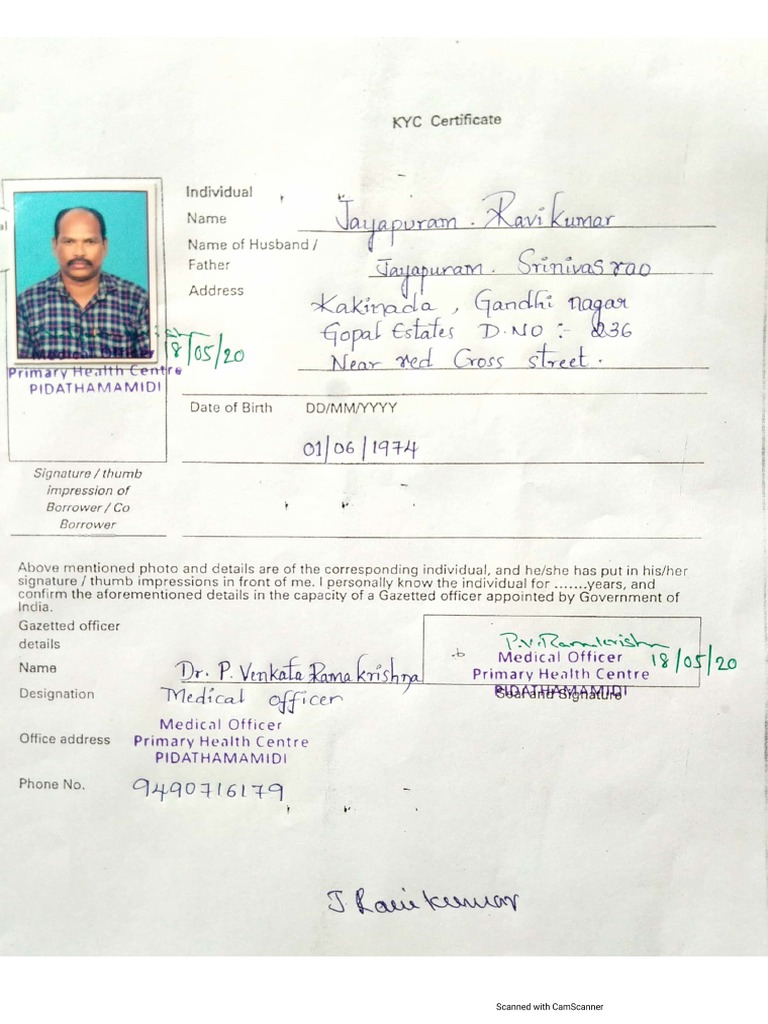 KYC Certificate
Individual
Name Jayapuram. Ravi Kumar
Name of Husband /
Father Jayapuram. Srinivasrao
Address Kakinada, Gandhi nagar
Gopal Estates D.NO :- 236
Near red Cross street.
18/05/20
Medical Officer
Primary Health Centre
PIDATHAMAMIDI
Date of Birth DD/MM/YYYY
01/06/1974
Signature / thumb
impression of
Borrower / Co
Borrower
Above mentioned photo and details are of the corresponding individual, and he/she has put in his/her
signature / thumb impressions in front of me. I personally know the individual for .......years, and
confirm the aforementioned details in the capacity of a Gazetted officer appointed by Government of
India.
Gazetted officer
details
P.V. Ramakrishna
Medical Officer 18/05/20
Primary Health Centre
PIDATHAMAMIDI
Seal and Signature
Name Dr. P. Venkata Ramakrishna
Designation Medical officer
Medical Officer
Office address Primary Health Centre
PIDATHAMAMIDI
Phone No. 9490716179
J Ravi Kumar
Scanned with CamScanner